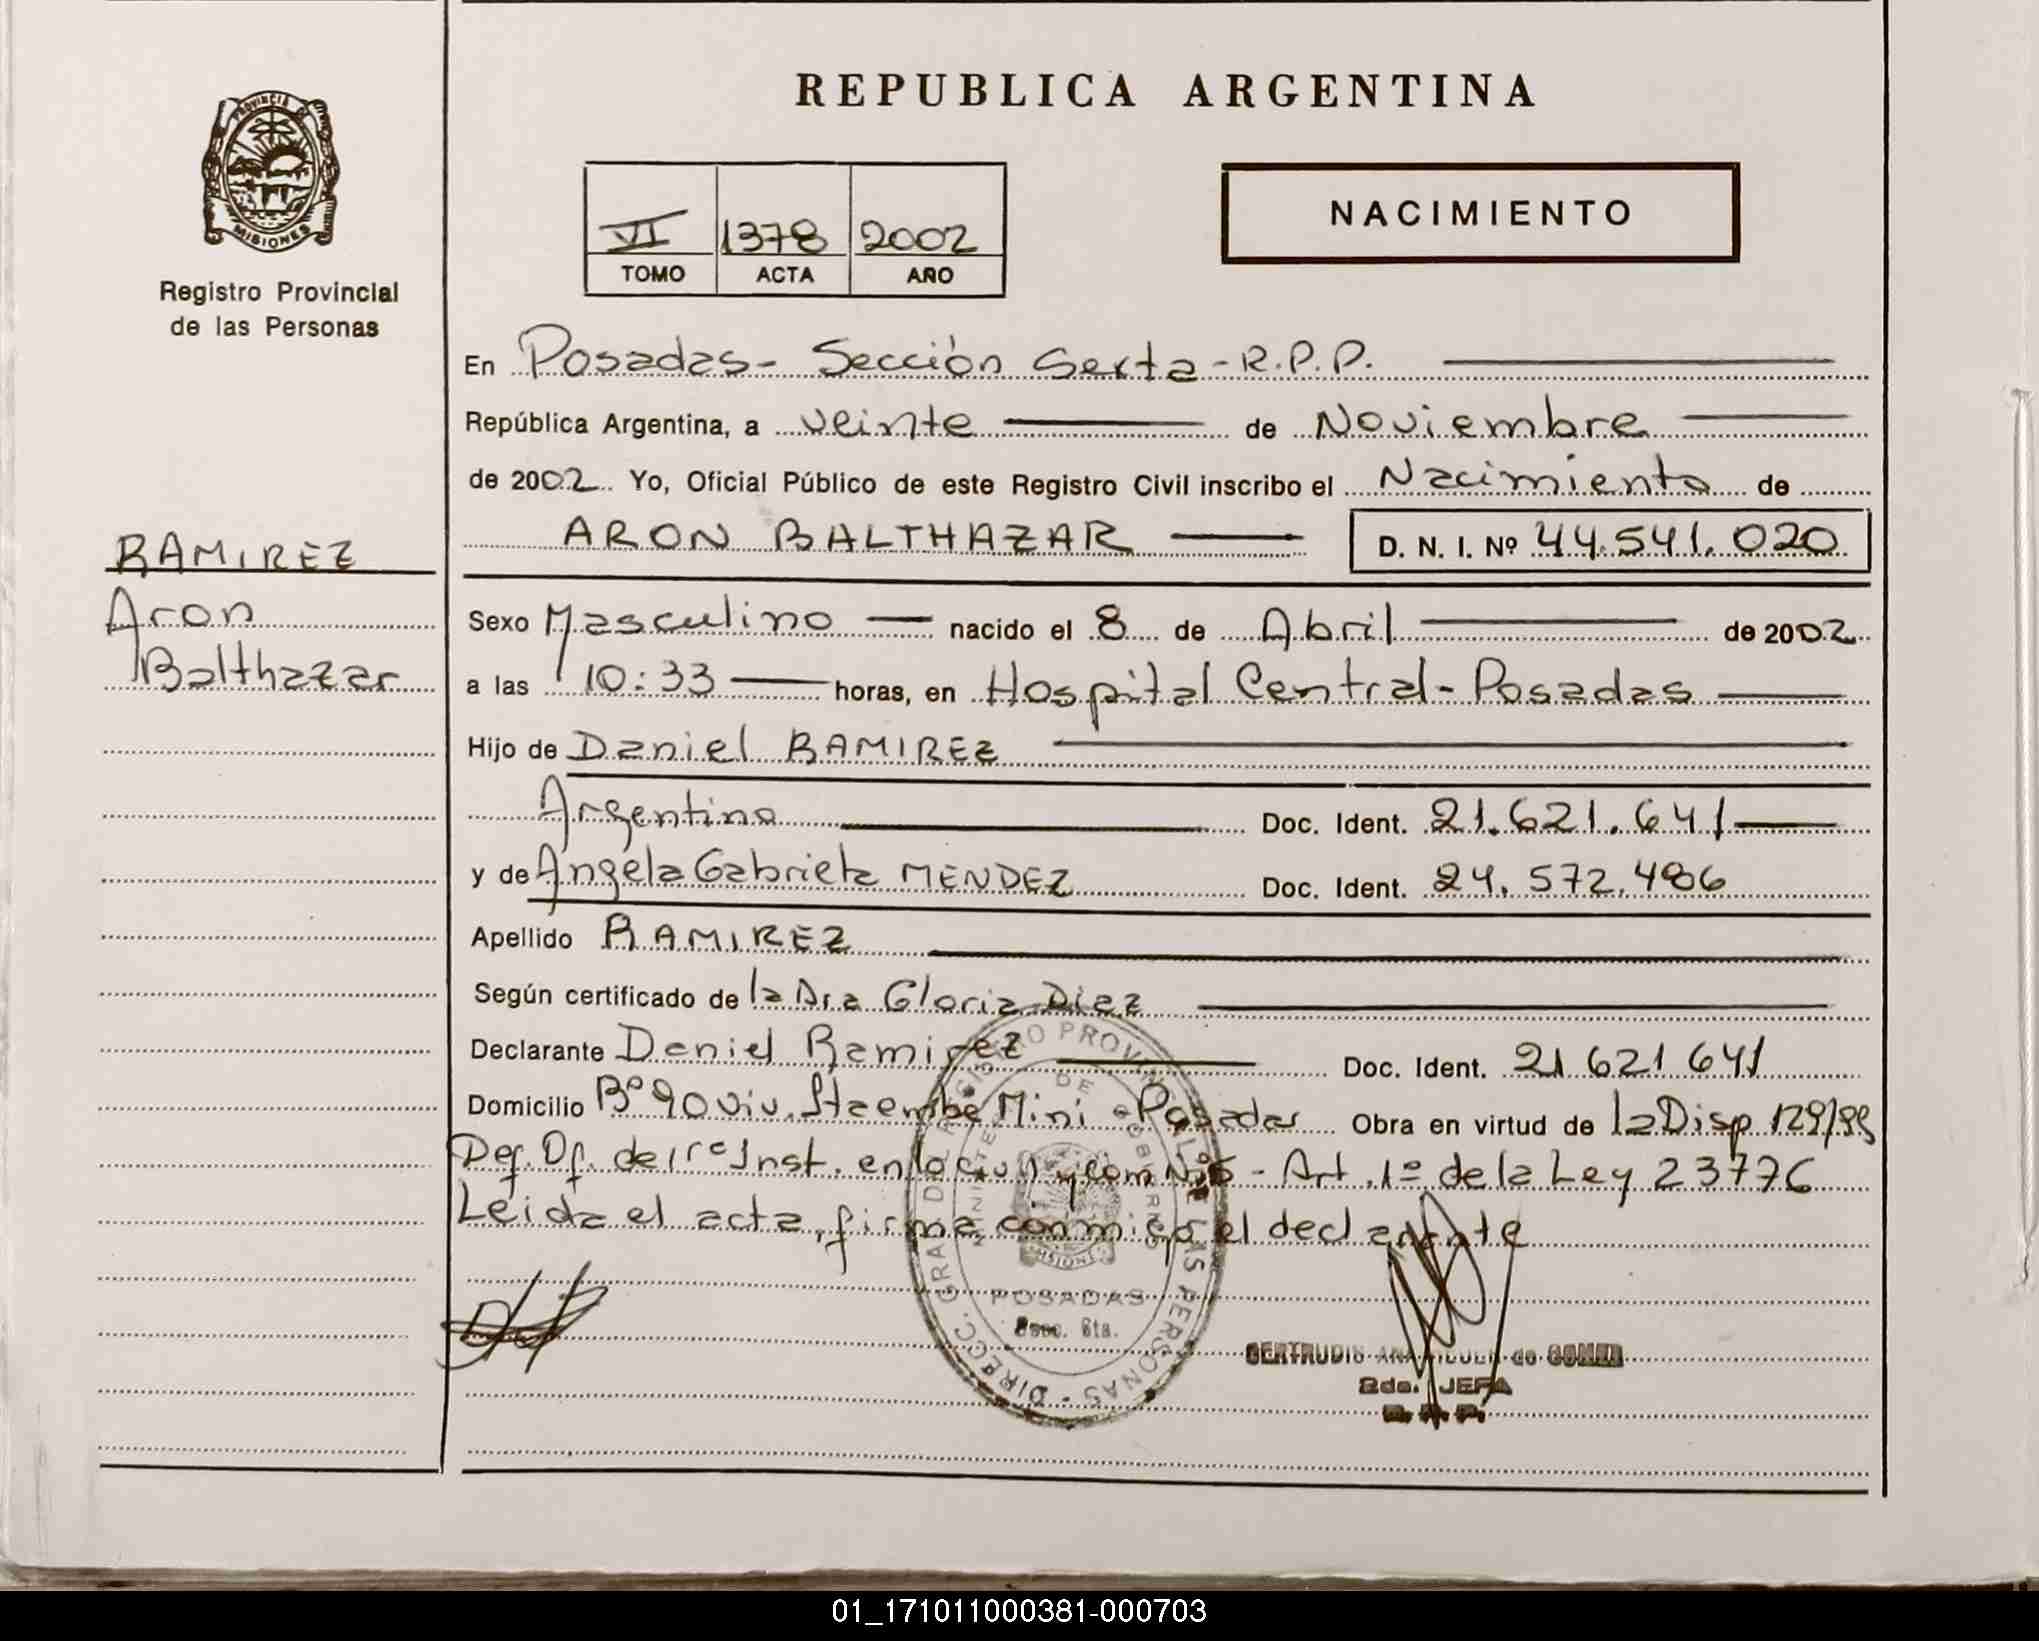 REPUBLICA ARGENTINA
PROVINCIA
MISIONES
Registro Provincial
de las Personas
VI 1378 2002
TOMO ACTA AÑO
NACIMIENTO
En Posadas - Sección Sexta - R.P.P.
República Argentina, a veinte de Noviembre
de 2002 Yo, Oficial Público de este Registro Civil inscribo el Nacimiento de
ARON BALTHAZAR D. N. I. Nº 44.541.020
RAMIREZ
Aron
Balthazar
Sexo Masculino nacido el 8 de Abril de 2002
a las 10:33 horas, en Hospital Central - Posadas
Hijo de Daniel RAMIREZ
Argentino Doc. Ident. 21.621.641
y de Angela Gabriela MENDEZ Doc. Ident. 24.572.486
Apellido RAMIREZ
Según certificado de la Dra Gloria Diez
Declarante Daniel Ramirez Doc. Ident. 21 621 641
Domicilio Bº 90 viv. Itaembe Mini - Posadas Obra en virtud de la Disp 129/99
Def. Of. de 1ra Inst. en lo y Com Nº - Art. 1º de la Ley 23776
Leida el acta, firma conmigo el declarante
DIRECC. GRAL. DEL REGISTRO PROVINCIAL DE LAS PERSONAS
MINISTERIO DE GOBIERNO
MISIONES
POSADAS
Secc. 6ta.
GERTRUDIS ANA de GOMEZ
2da. JEFA
R. P. P.
01_171011000381-000703